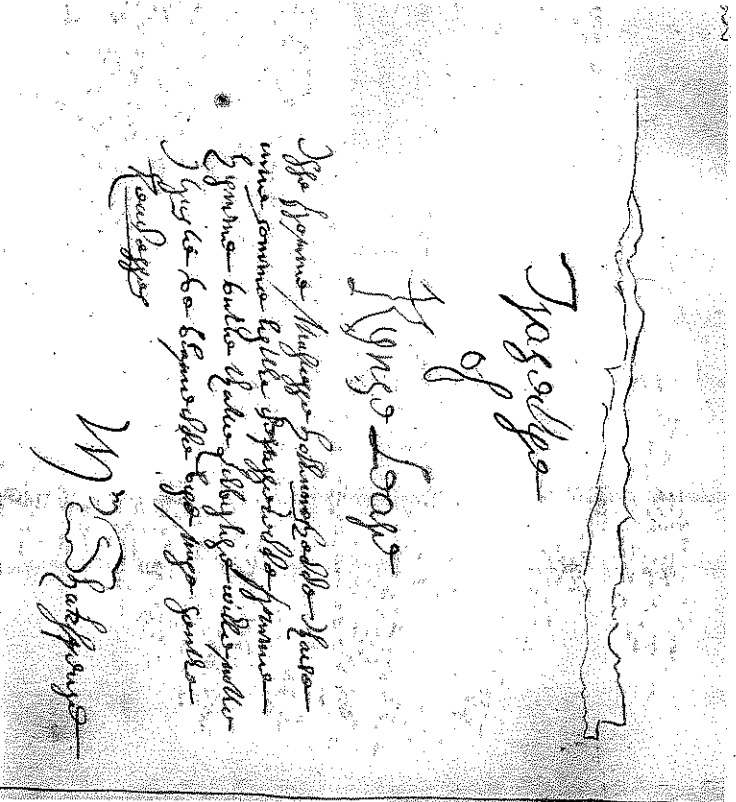 Tragedye
of
Kynge Leare
Isse fromme Masterre Hollinneshedde I have
inne somme lyttle departedde fromme
hymme butte thatte Libbertye will notte
I truste be blamedde bye mye gentle
Readerres
Wm Shakspeare